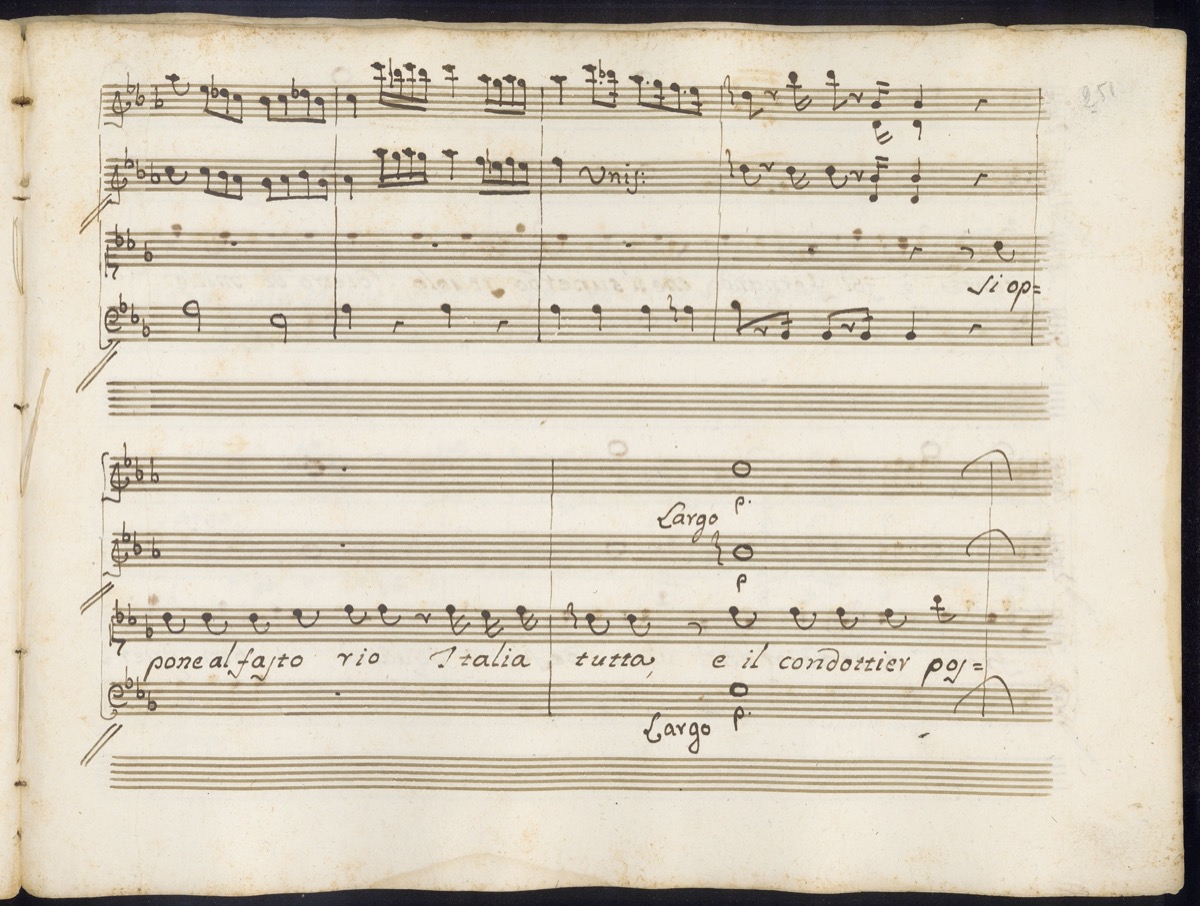 251
Unis:
Si op=
p.
Largo
p
pone al fasto rio Italia tutta, e il condottier pos=
Largo p.